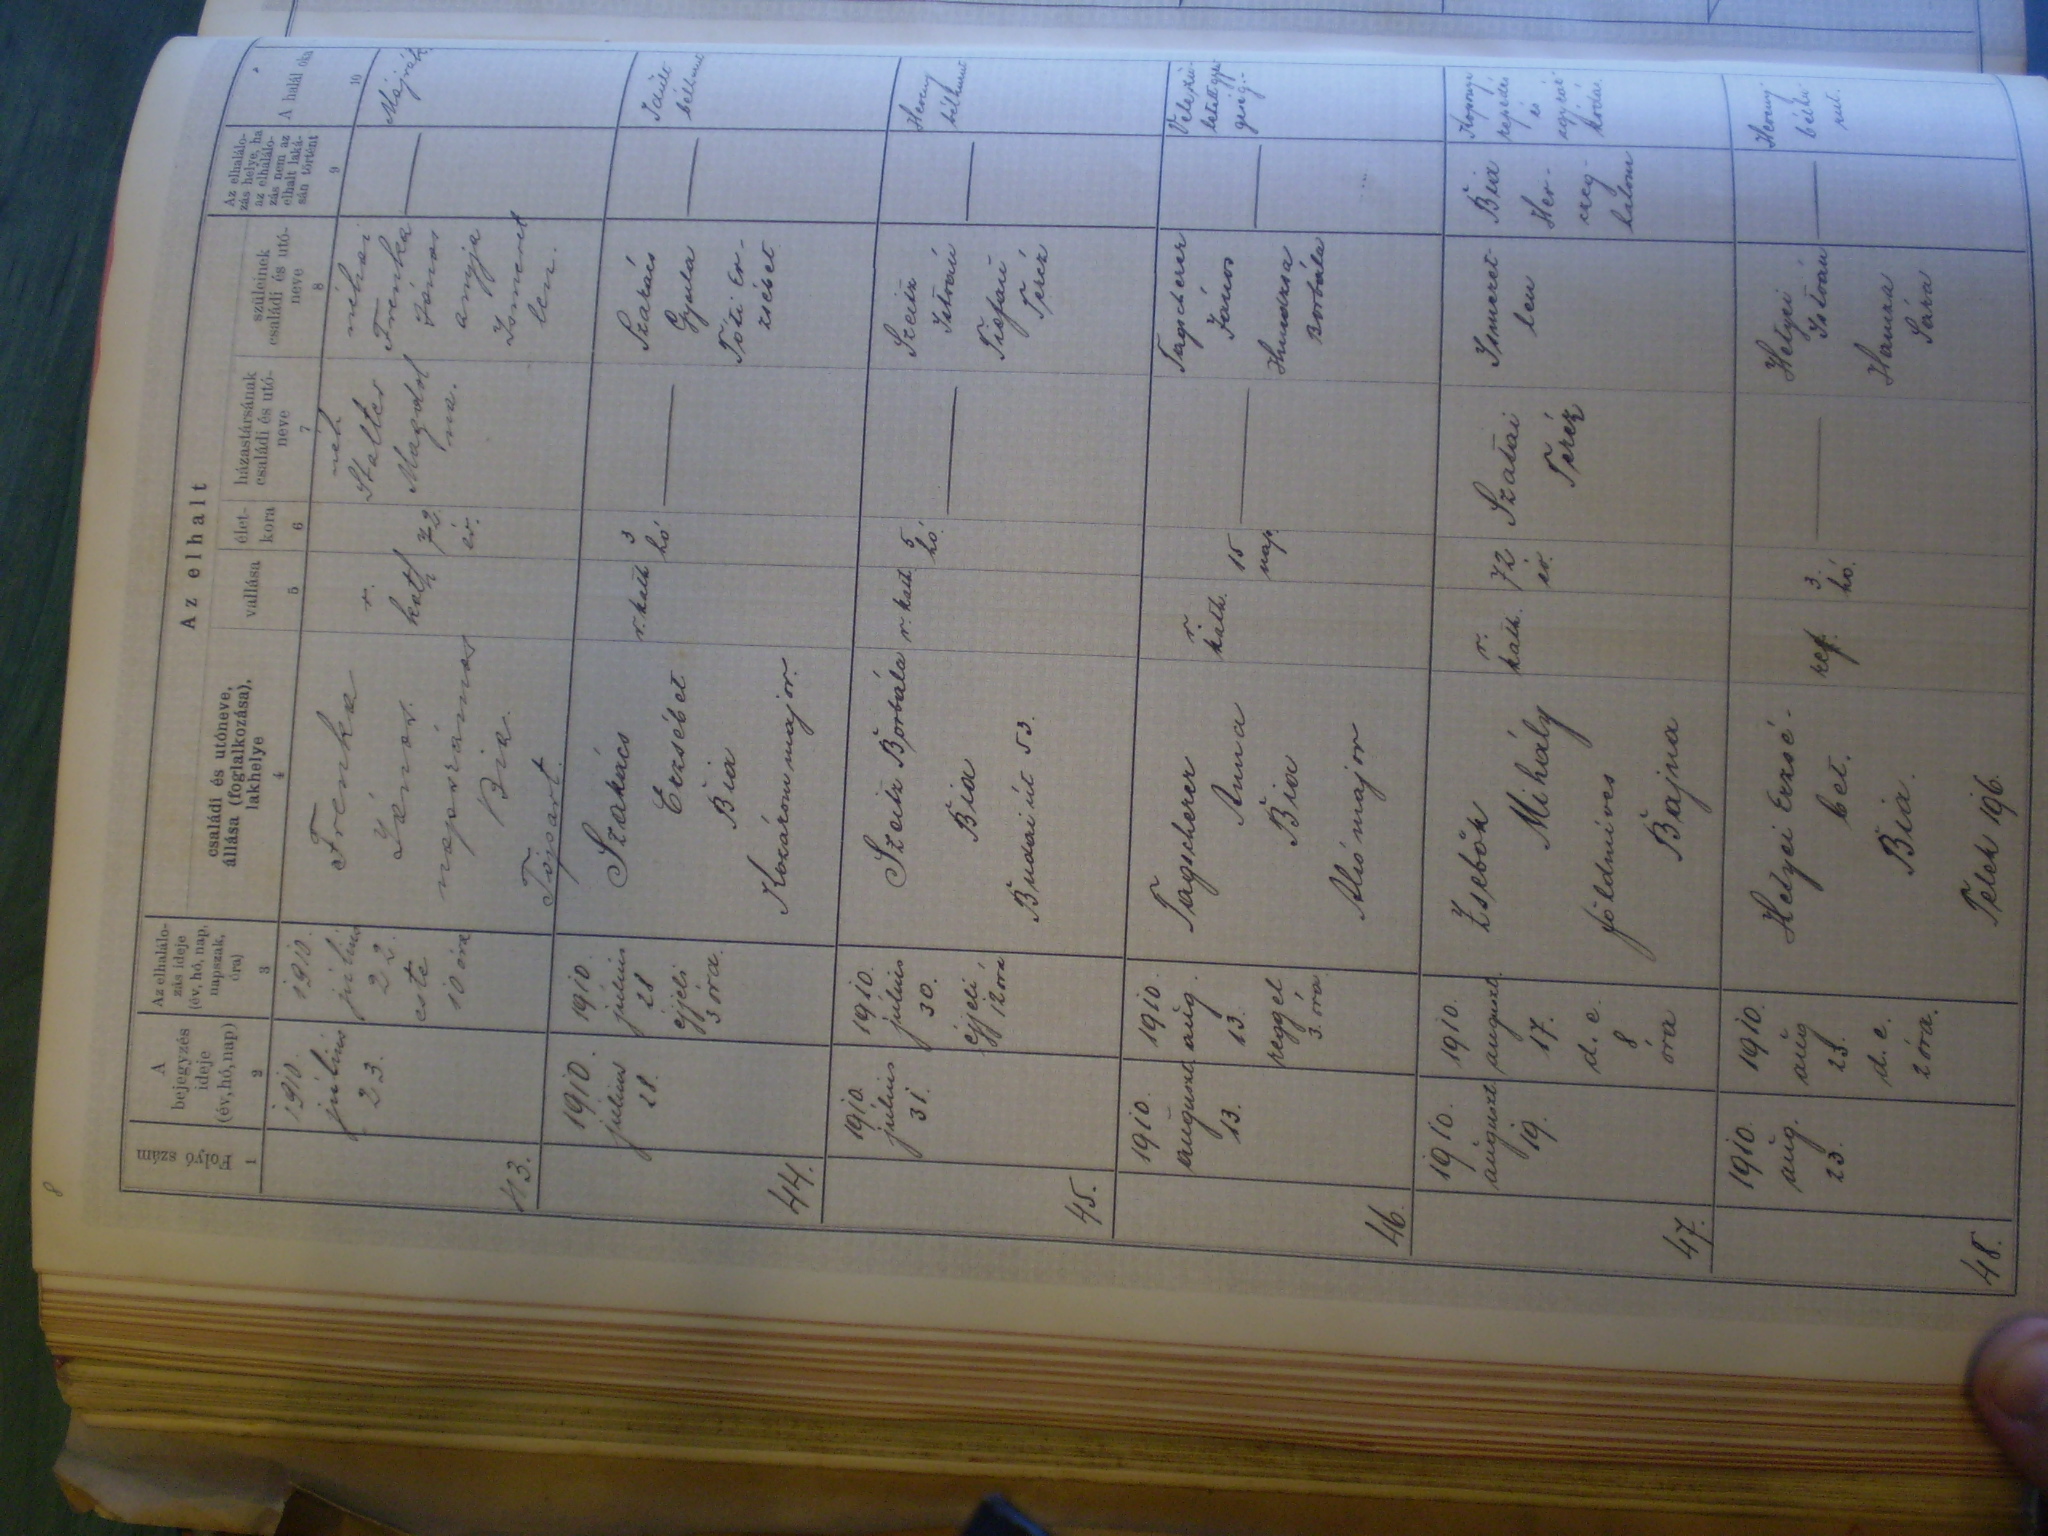 8
Az elhalt
Folyó szám
A bejegyzés ideje (év, hó, nap)
Az elhalálo-
zás ideje
(év, hó, nap,
napszak,
óra)
családi és utóneve,
állása (foglalkozása),
lakhelye
vallása
élet-
kora
házastársának
családi és utó-
neve
szüleinek
családi és utó-
neve
Az elhalálo-
zás helye, ha
az elhalálo-
zás nem az
elhalt laká-
sán történt
A halál oka
1 2 3 4 5 6 7 8 9 10
43.
1910.
július
23.
1910.
július
22.
este
10 óra
Frenka
János
napszámos
Bia
r.
kath
72
év.
néh
Stalter
Magdol
na.
néhai
Frenka
János
anyja
Ismeret
len.
44.
1910.
július
28.
1910.
július
28
éjjeli
3 óra.
Szakács
Erzsébet
Bia
r. kath
3
hó
Szakács
Gyula
Tóti Er-
zsébet
Idült
bélhurut
45.
1910.
július
31.
1910.
július
30.
éjjeli
12 óra
Szeitz Borbála
Bia
Budai út 53.
r. kath.
5
hó
Szeitz
István
Teréz
Heveny
bélhurut
46.
1910.
augusz
13.
1910
aug.
13.
reggel
3. óra
Tagscherer
Anna
Bia
Alsómajor
r.
kath.
15
nap.
Tagscherer
János
Borbála
47.
1910.
auguszt
19.
1910.
auguszt.
17.
d. e.
8
óra
Zsebők
Mihály
földmíves
Bajna
r.
kath.
72
év.
Szatai
Teréz
Ismeret
len
Bia
Her-
czeg
malom
48.
1910.
aug.
23.
1910.
aug
23.
d. e.
2 óra.
Helyei Erzsé-
bet.
Bia.
Telek 196.
ref.
3.
hó.
Helyei
István
Hanna
Sára
Heveny
bélhu
rut.